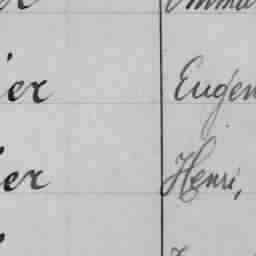 ier Eugen
ier Henri,